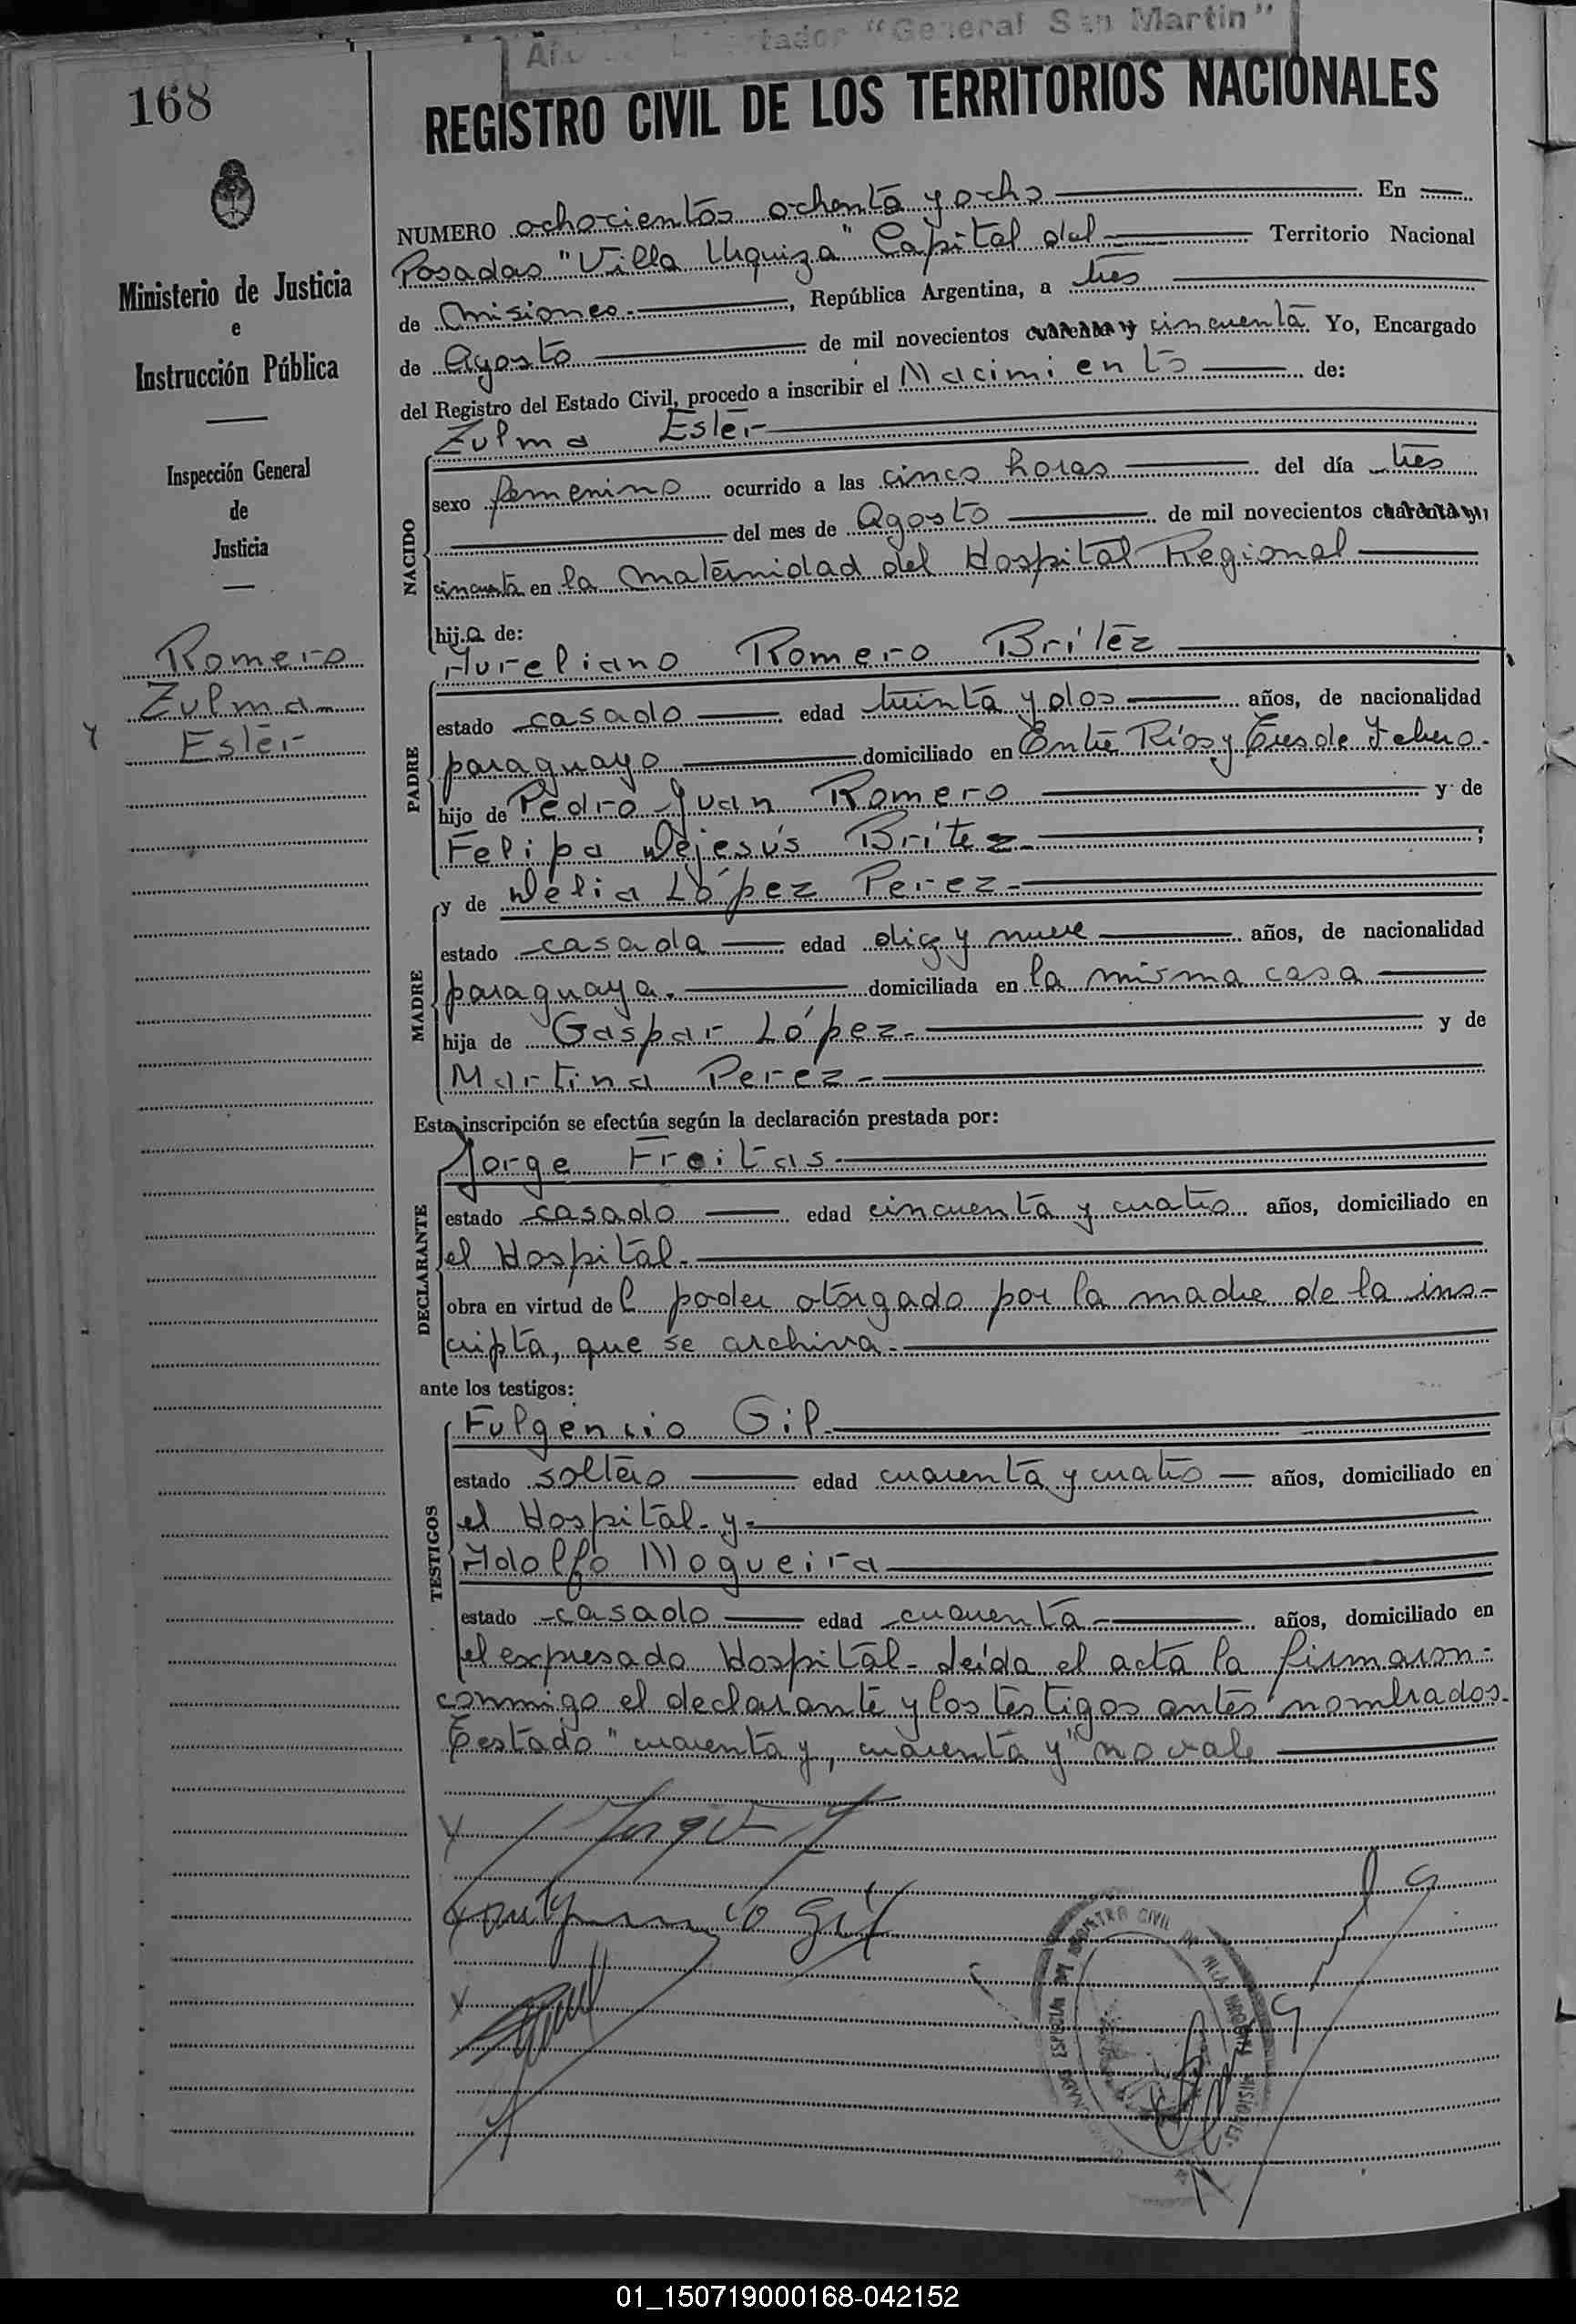 "General San Martin"
168
REGISTRO CIVIL DE LOS TERRITORIOS NACIONALES
NUMERO ochocientos ochenta y ocho En
Posadas "Villa Urquiza" Capital del Territorio Nacional
de Misiones.-, República Argentina, a tres
de Agosto de mil novecientos cuarenta y cincuenta. Yo, Encargado
del Registro del Estado Civil, procedo a inscribir el Nacimiento de:
Ministerio de Justicia
e
Instrucción Pública
Inspección General
de
Justicia
Romero
Zulma
Ester
NACIDO
Zulma Ester
sexo femenino ocurrido a las cinco horas del día tres
del mes de Agosto de mil novecientos cuarenta y
cincuenta en la Maternidad del Hospital Regional
hija de:
PADRE
Aureliano Romero Britez
estado casado edad treinta y dos años, de nacionalidad
paraguayo domiciliado en Entre Ríos y Tres de Febrero.
hijo de Pedro Juan Romero y de
Felipa Dejesús Brítez- ;
MADRE
y de Delia López Perez-
estado casada edad diez y nueve años, de nacionalidad
paraguaya. domiciliada en la misma casa
hija de Gaspar López- y de
Martina Perez-
Esta inscripción se efectúa según la declaración prestada por:
DECLARANTE
Jorge Freitas-
estado casado edad cincuenta y cuatro años, domiciliado en
el Hospital.
obra en virtud del poder otorgado por la madre de la ins-
cripta, que se archiva.-
ante los testigos:
TESTIGOS
Fulgencio Gil-
estado soltero edad cuarenta y cuatro años, domiciliado en
el Hospital- y-
Adolfo Nogueira
estado casado edad cuarenta- años, domiciliado en
el expresado Hospital- Leída el acta la firmaron-
conmigo el declarante y los testigos antes nombrados-
Testado "cuarenta y, cuarenta y" no vale
01_150719000168-042152